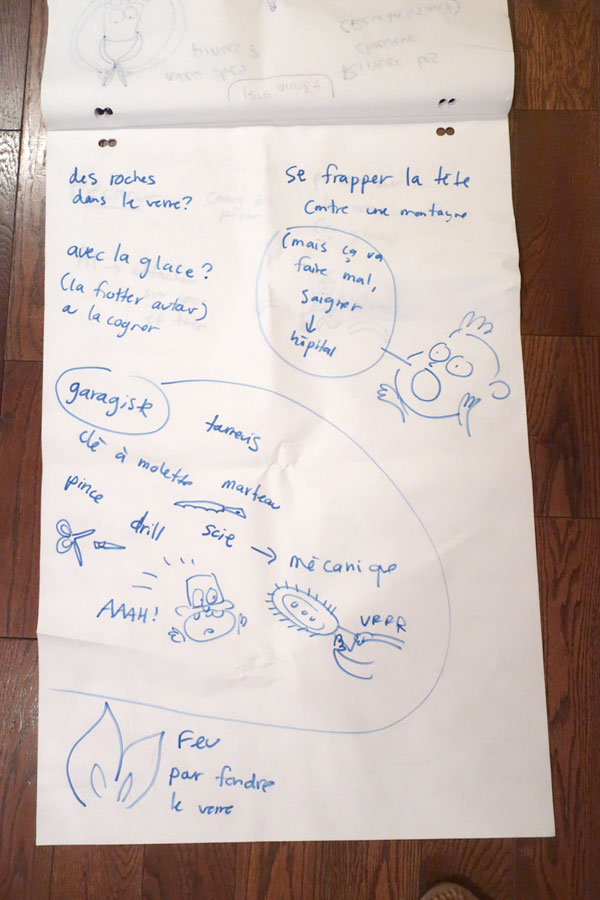 Rincer les
cheveux
1ère année
avec des
pinces ?
des roches
dans le verre ?
avec la glace ?
(la frotter autour)
ou la cogner
se frapper la tête
contre une montagne
(mais ça va
faire mal,
saigner
↓
hôpital
garagiste
tournevis
clé à molette
marteau
pince
drill
scie → mécanique
AAAH !
VRRR
Feu
pour fondre
le verre